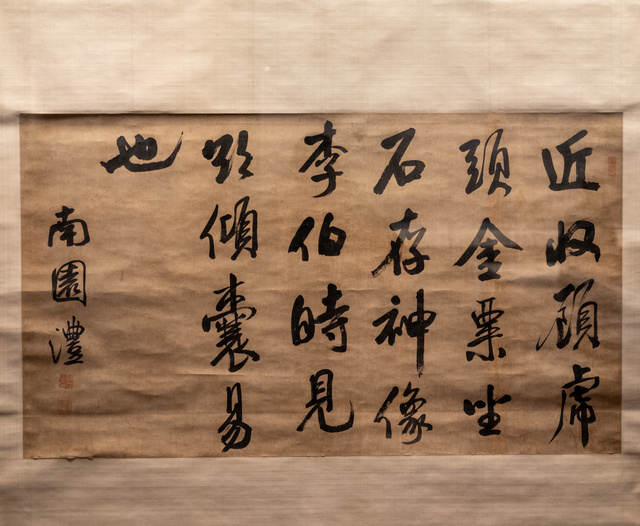 近收顧虎
頭金粟坐
石存神像
李伯時見
傾囊易
也
南園灃